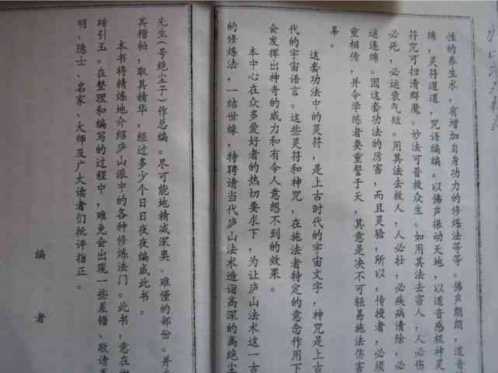 性的养生术，有增加自身功力的修炼法等等。佛声朗朗，道音
绵绵，灵符道道，咒语编编。以佛声振动天地，以道音感报神灵
符咒可扫清群魔。妙法可普救众生。如用其法去害人，人必伤
必死，必运衰气短。用其法去救人，人必壮，必疾病清除，必
谜连绵。因这套功法的厉害，而且灵验，所以，传授者，必须
重相传，并令学练者要重誓于天，其意是决不可轻易施法伤害
辜。
这套功法中的灵符，是上古时代的宇宙文字，神咒是上古
代的宇宙语言。这些灵符和神咒，在施法者特定的意念作用下
会发挥出神奇的威力和有令人意想不到的效果。
本中心在众多爱好者的热切要求下，为让庐山法术这一古
的修炼法，一结世缘，特聘请当代庐山法术造诣高深的高绝尘子
先生（号绝尘子）作总编。尽可能地精减深奥、难懂的部份。并
其糟帕，取其精华，经过多少个日日夜夜编成此书。
本书将精炼地介绍庐山派中的各种修炼法门。此书，意在抛
砖引玉。在整理和编写的过程中，难免会出现一些差错、敬请
明、隐士、名家、大师及广大读者们批评指正。
编 者